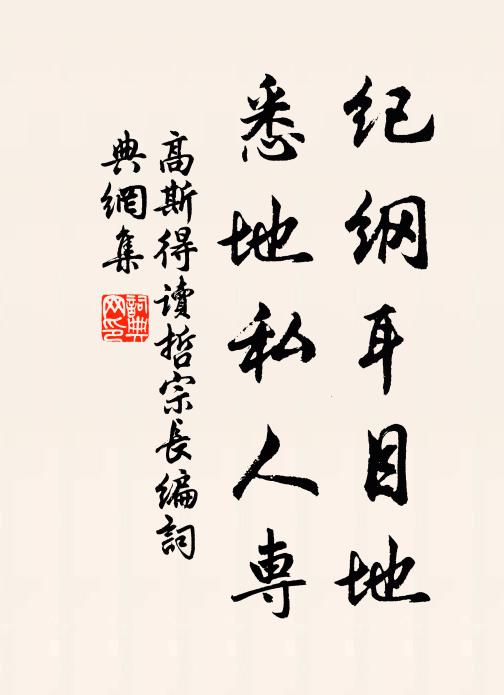 纪纲耳目地
悉地私人専
高斯得读哲宗长编词
典網集
詞典
网印